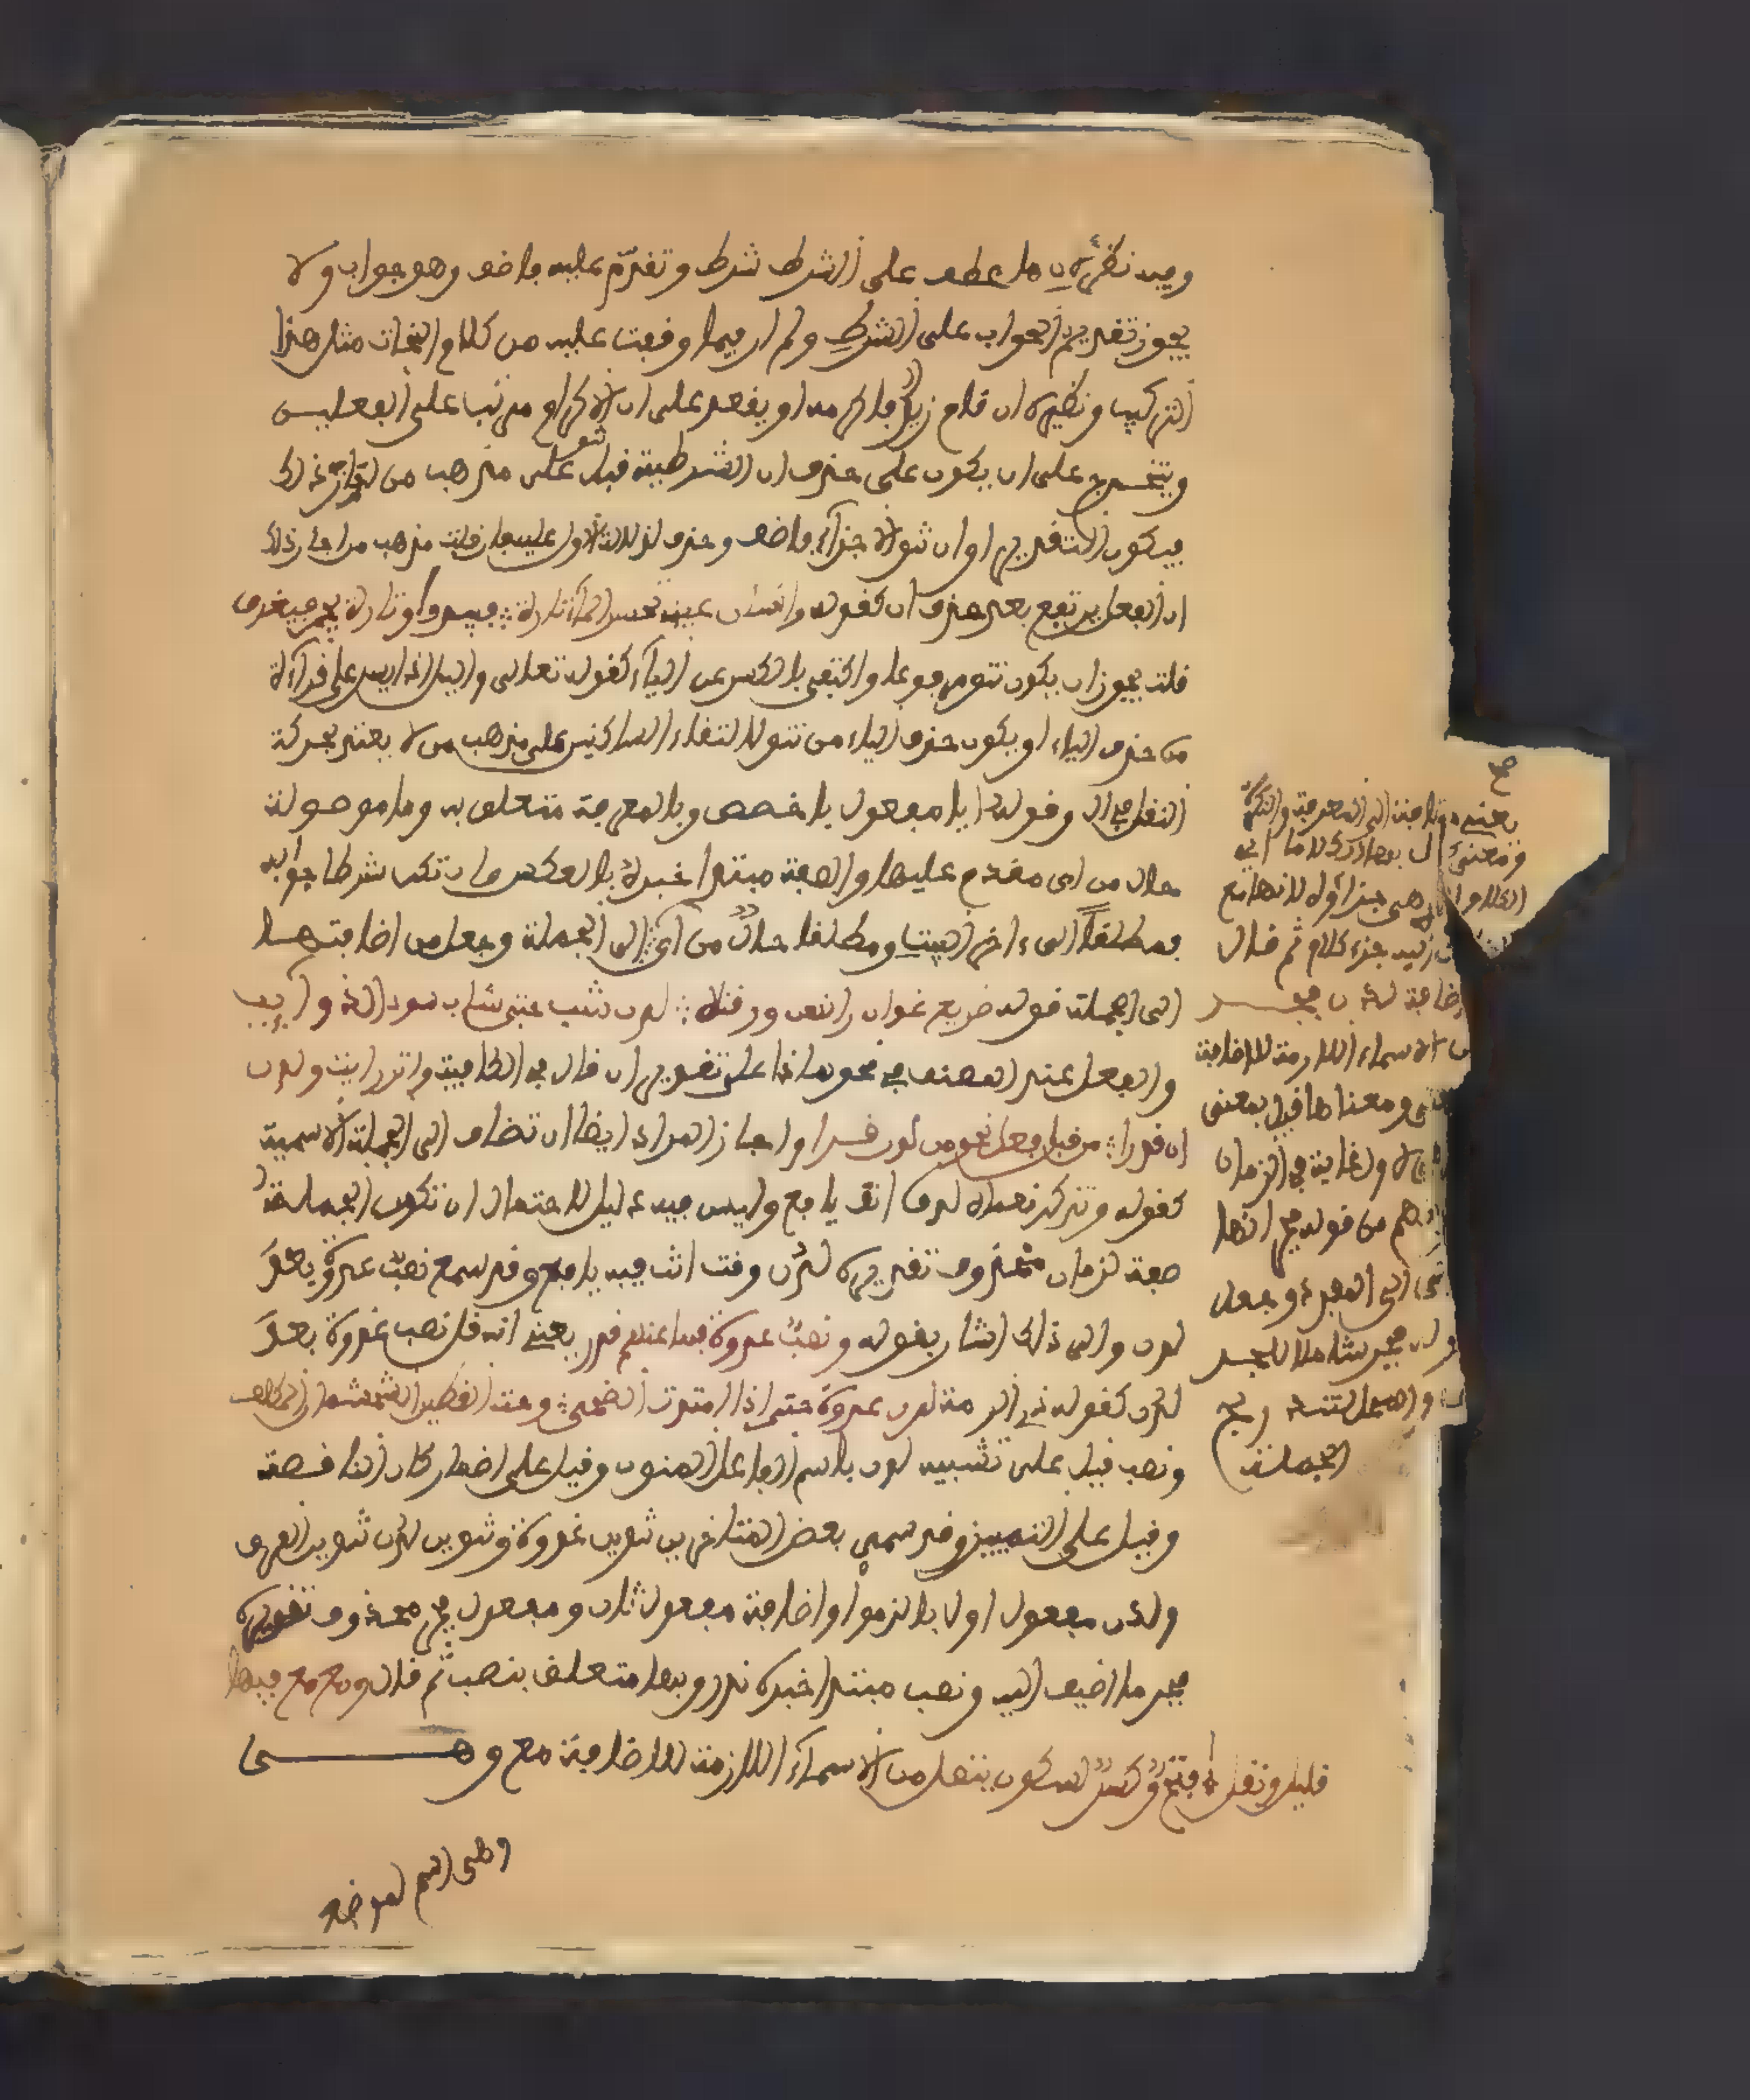 وفيه نظر لان ما عطف على الشرط شرط وتقدم عليه ماض وهو جواب ولا
يجوز تقديم الجواب على الشرط ولم ار فيما وقفت عليه من كلام النحات مثل هذا
التركيب ونظيره ان قام زيد فاكرمه او يقعد على ان الاكرام مرتب على الفعلين
ويتخرج على ان يكون على حذف ان الشرطية قبل تنو على مذهب من اجاز ذلك
فيكون التقدير او ان تنو الاجزاء ماض وحذف لدلالة الاول عليه فان قلت مذهب من اجاز ذلك
ان الفعل يرتفع بعد حذف ان كقوله وانسان عيني يحسر الماء تارة فيبدو وتارة يجم فيغرق
قلت يجوز ان يكون تنو مرفوعا واكتفى بالكسر عن الياء كقوله تعالى واليل اذا يسر على قراءة
من حذف الياء او يكون حذف الياء من تنو لالتقاء الساكنين على مذهب من لا يعتد بحركة
النقل في ال وقوله ايا مفعول باخصص وبالمعرفة متعلق به وما موصولة
حال من اي مقدم عليها والصفة مبتدا خبره بالعكس وان تكن شرطا جوابه
فمطلقا الى ءاخر البيت ومطلقا حال من اي الى الجملة وجعل من اضافتها
الى الجملة قوله صريع غوان راقهن ورقنه لدن شب حتى شاب سود الذوايب
والفعل عند المصنف في نحو هذا على تقدير ان قال في الكافية واترر ايت ولدن
ان قدرا من قبل فعل نحو من لدن قرا واجاز المرادي ايضا ان تضاف الى الجملة الاسمية
كقوله وتذكر نعماه لدن انت يافع وليس فيه دليل لاحتمال ان تكون الجملة
صفة لزمان محذوف تقديره لدن وقت انت فيه يافع وقد سمع نصب غدوة بعد
لدن والى ذلك اشار بقوله ونصب غدوة بها عنهم ندر يعني انه قل نصب غدوة بعد
لدن كقوله ذي الرمة لدن غدوة حتى اذا امتدت الضحى وحث القطين الشحشحان المكلف
ونصب قيل على تشبيه لدن باسم الفاعل المنون وقيل على اضمار كان الناقصة
وقيل على التمييز وقد سمى بعض المتاخرين تنوين غدوة وتنوين لدن تنوين الفرق
ولدن مفعول اول بالزموا واضافة مفعول ثان ومفعول جر محذوف تقديره
جر ما اضيف اليه ونصب مبتدا خبره ندر وبها متعلق بنصب ثم قال ومع مع فيها
قليل ونقل فتح وكسر لسكون يتصل من الاسماء اللازمة للاضافة مع وهي
وهي اسم لموضع
صح
يعني مضافة الى المعرفة والنكرة
ومعنى
هي جزاؤه لانها مع
زيد جزء كلام ثم قال
اضافة لدن فجر
من الاسماء اللازمة للاضافة
ومعناها قيل بمعنى
لاول غاية في الزمان
فهم من قوله جر انها
الى المفرد وجعل
جر شاملا للجر
الجملة